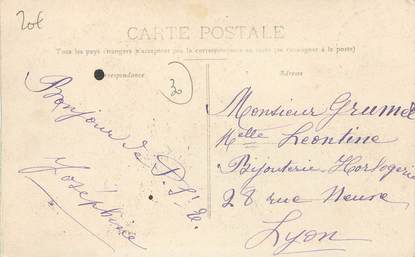 20€
CARTE POSTALE
Tous les pays étrangers n'acceptent pas la correspondance au recto (se renseigner à la poste)
Correspondance
Adresse
30
Bonjour de P. St
Joséphine
Monsieur Grumel
Melle Léontine
Bijouterie Horlogerie
28 rue Neuve
Lyon